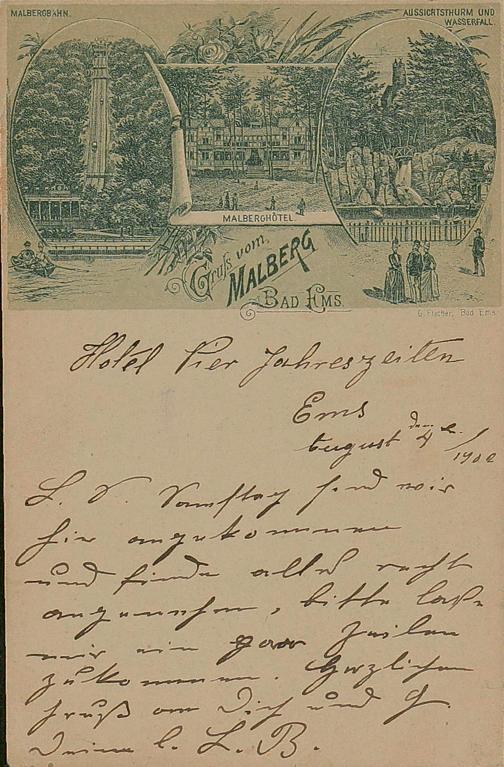 MALBERGBAHN.
AUSSICHTSTHURM UND
WASSERFALL.
MALBERGHÔTEL.
Gruß vom
MALBERG
BAD EMS.
G. Fischer, Bad Ems
Hotel Vier Jahreszeiten
Ems
August den 4
L. Samstag sind wir
hier angekommen
und finde alles recht
angenehm, bitte lasse
mir ein paar Zeilen
zukommen. Herzlichen
Gruß an Dich und G.
Deine l. L. B.